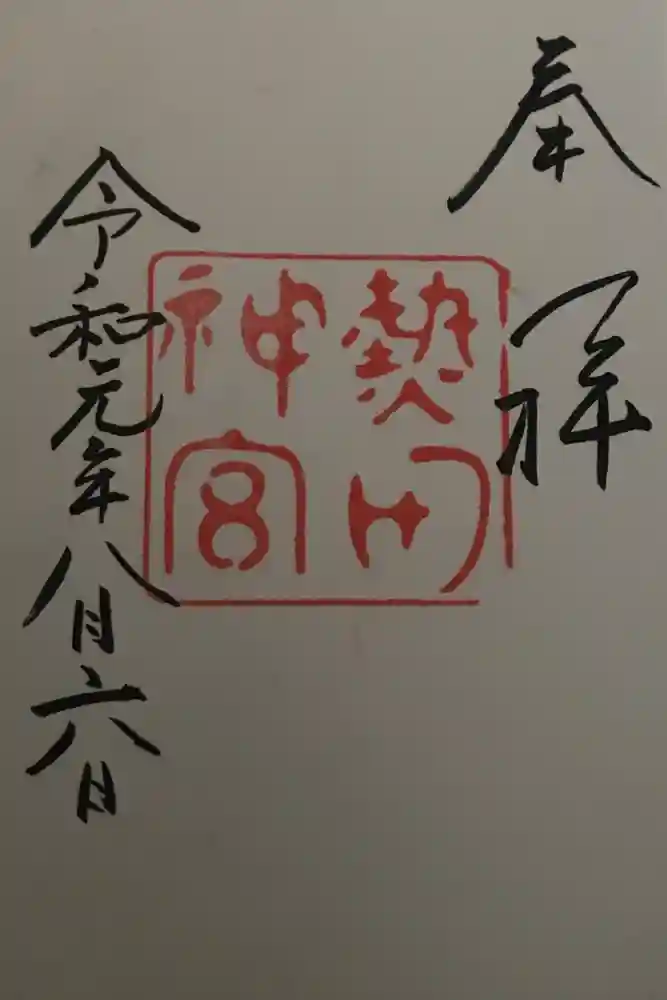 奉拝
熱田
神宮
令和元年八月六日